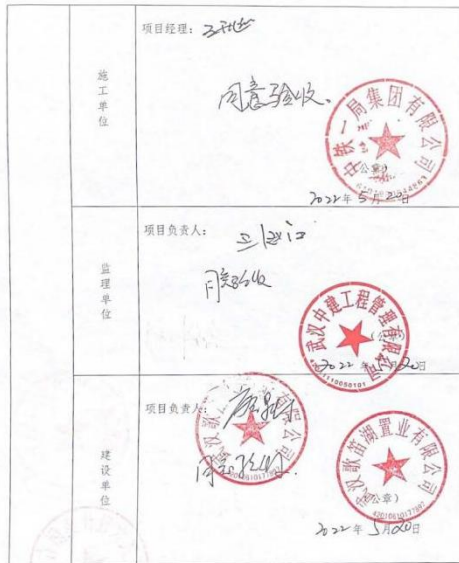 施工单位
项目经理：
同意验收.
中铁一局集团有限公司
（公章）
2022年5月20日
监理单位
项目负责人：
同意验收
武汉中建工程管理有限公司
2022年5月20日
建设单位
项目负责人：
同意验收.
武汉歌笛湖置业有限公司
武汉歌笛湖置业有限公司
（公章）
2022年5月20日